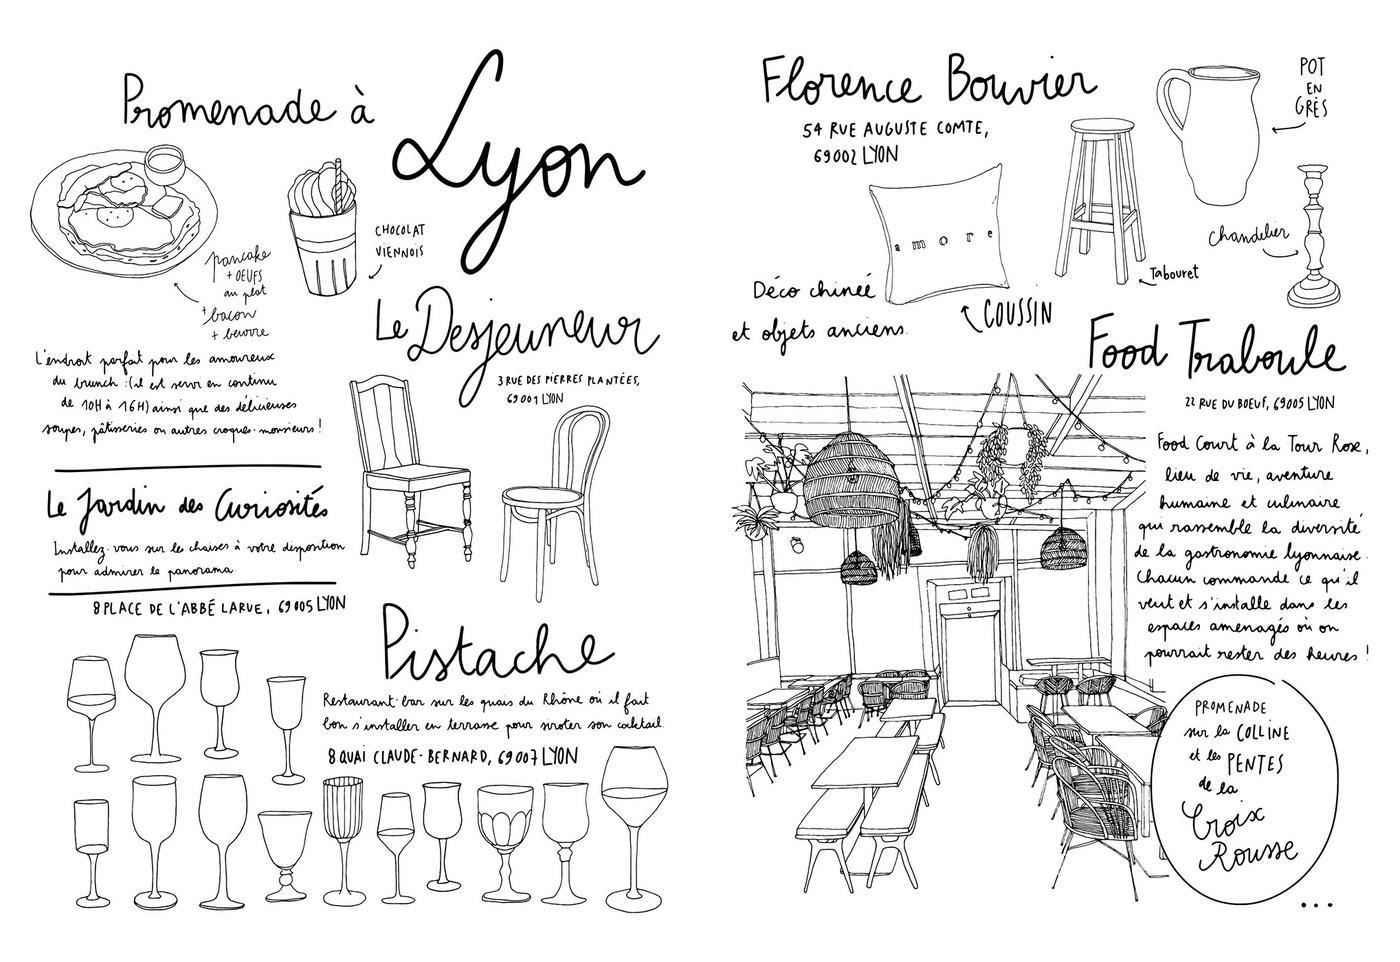 Promenade à
Lyon
pancake
+ OEUFS
au plat
+ bacon
+ beurre
CHOCOLAT
VIENNOIS
Le Desjeuneur
3 RUE DES PIERRES PLANTÉES,
69001 LYON
L'endroit parfait pour les amoureux
du brunch : (il est servi en continu
de 10H à 16H) ainsi que des délicieuses
soupes, pâtisseries ou autres croques-monsieurs !
Le Jardin des Curiosités
Installez-vous sur les chaises à votre disposition
pour admirer le panorama.
8 PLACE DE L'ABBÉ LARUE, 69005 LYON
Pistache
Restaurant-bar sur les quais du Rhône où il fait
bon s'installer en terrasse pour siroter son cocktail.
8 QUAI CLAUDE-BERNARD, 69007 LYON
Florence Bouvier
54 RUE AUGUSTE COMTE,
69002 LYON
POT
EN
GRÈS
amore
Chandelier
Tabouret
Déco chinée
et objets anciens.
COUSSIN
Food Traboule
22 RUE DU BOEUF, 69005 LYON
Food Court à la Tour Rose,
lieu de vie, aventure
humaine et culinaire
qui rassemble la diversité
de la gastronomie lyonnaise.
Chacun commande ce qu'il
veut et s'installe dans les
espaces amenagés où on
pourrait rester des heures !
PROMENADE
sur la COLLINE
et les PENTES
de la
Croix
Rousse
...